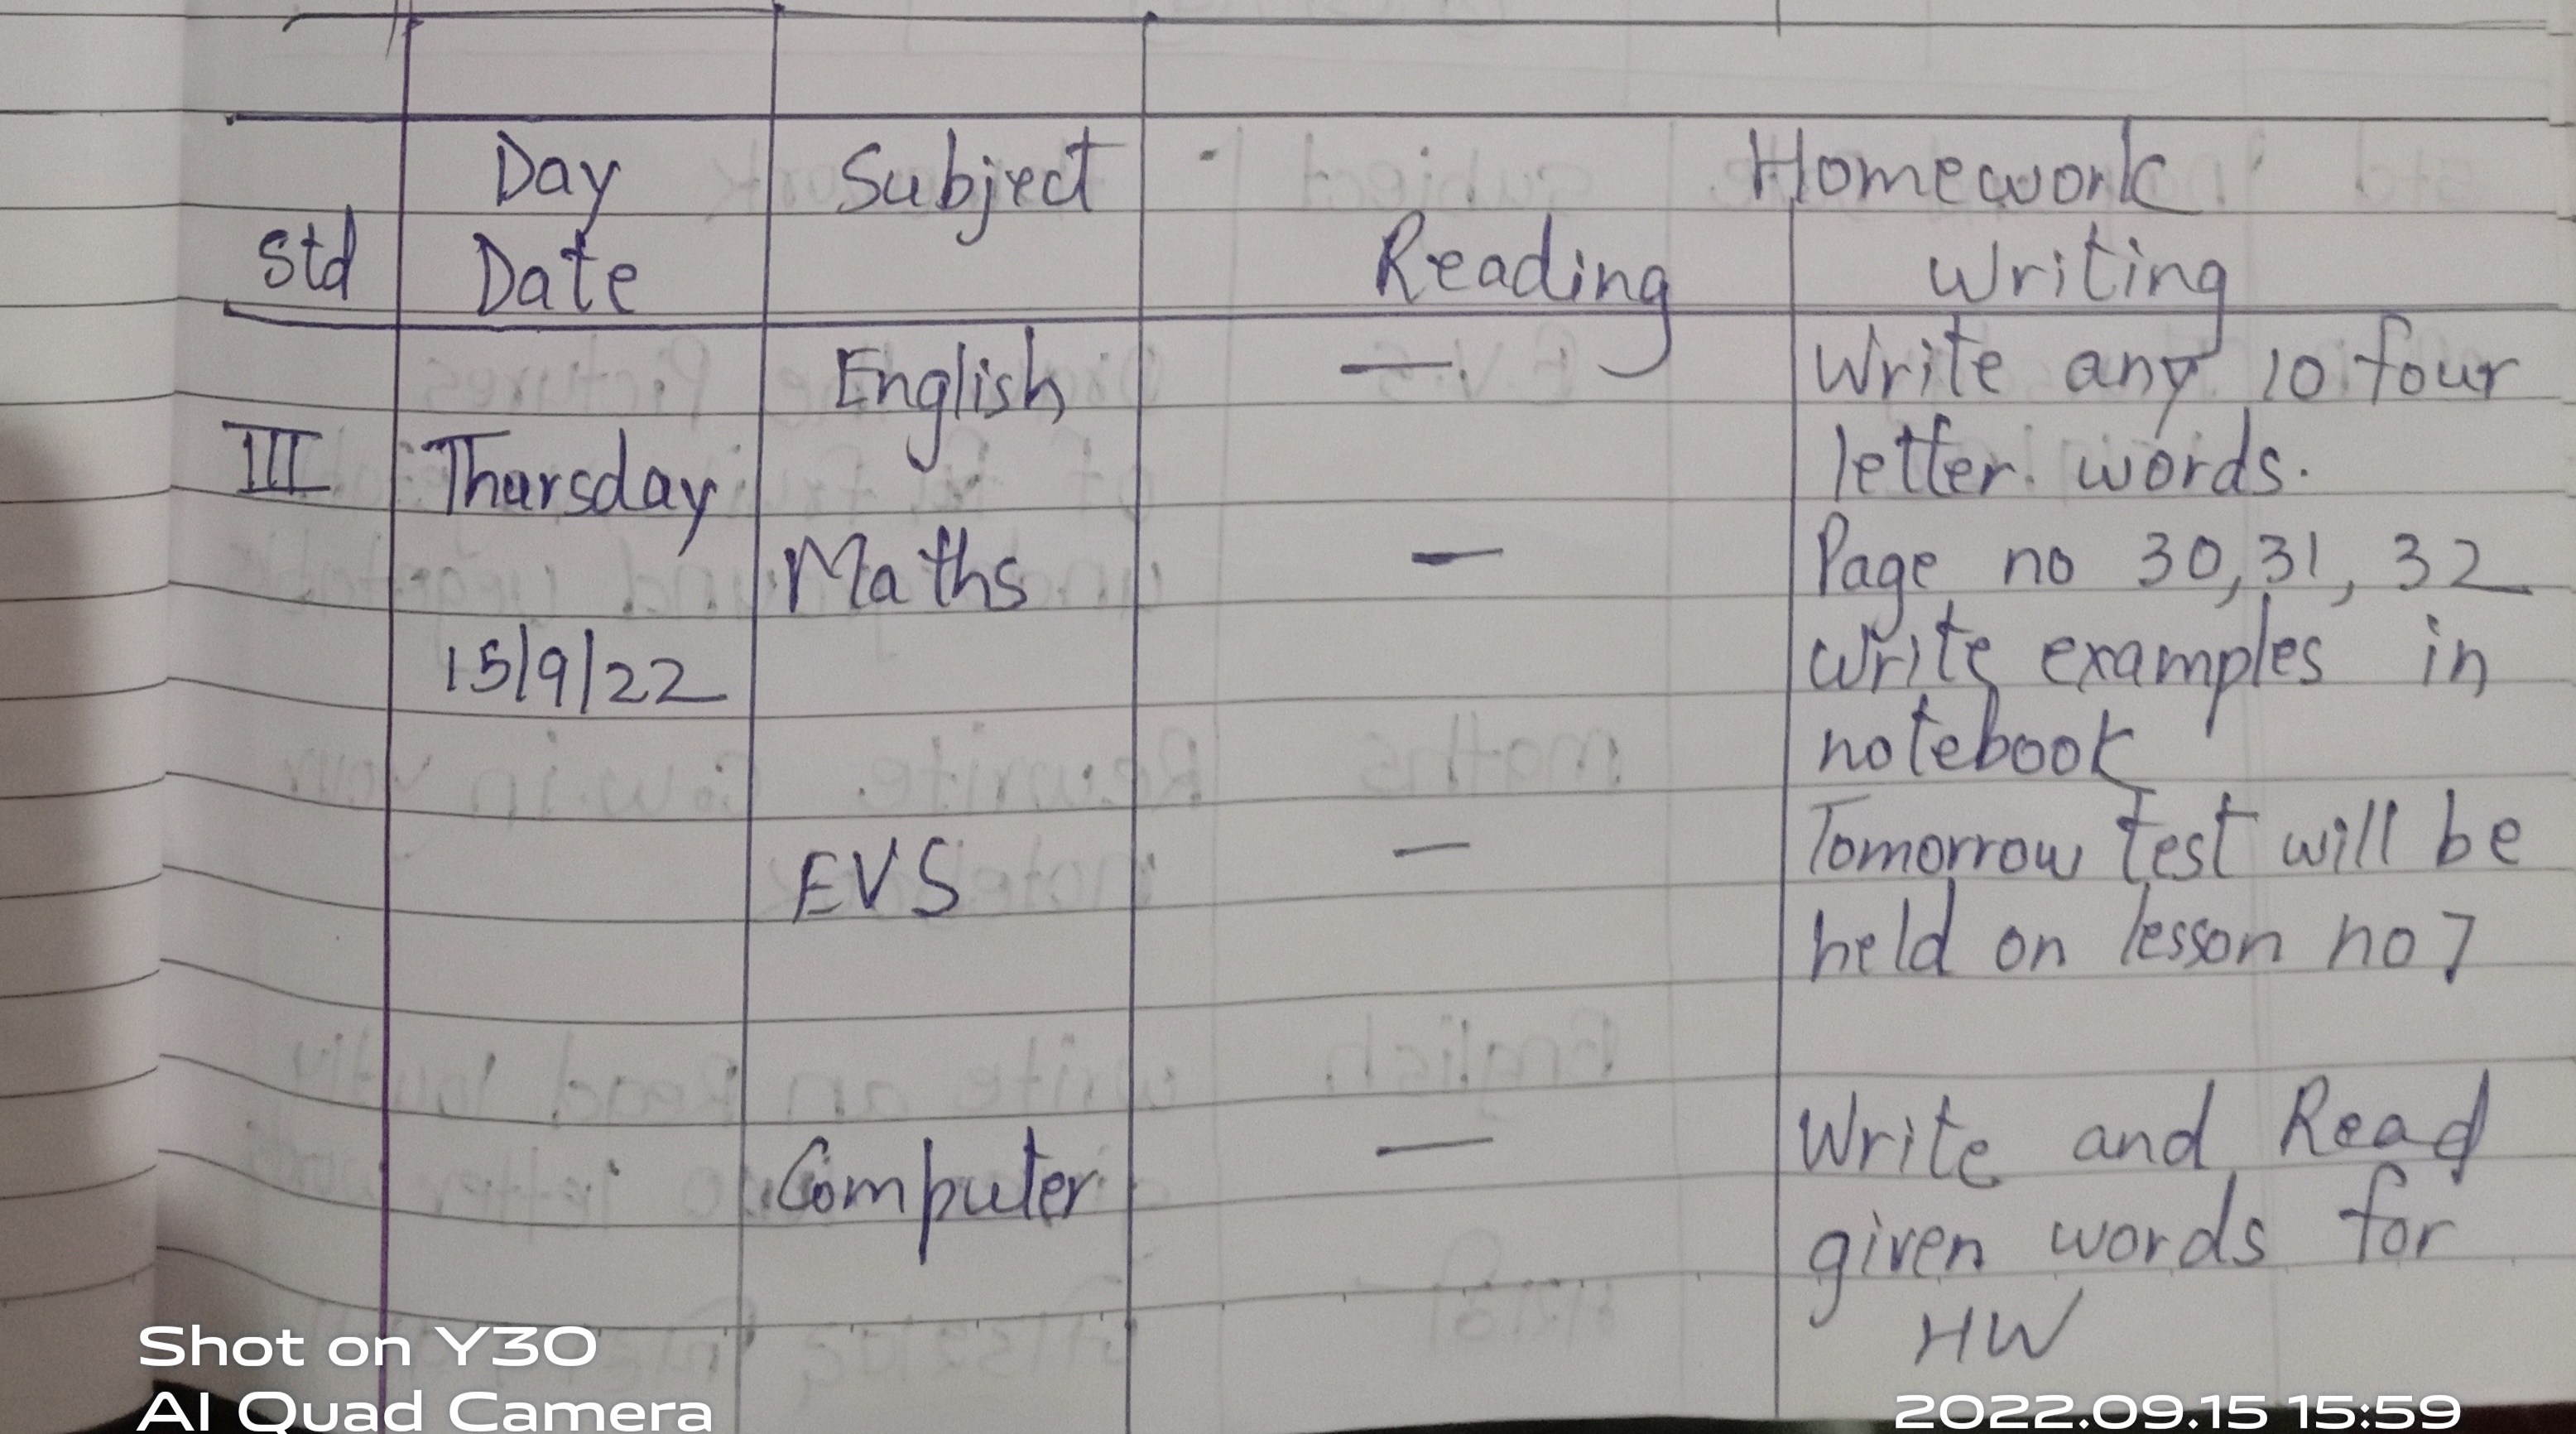 Day Subject Homework
Std Date Reading Writing
English — Write any 10 four
III Thursday letter words.
Maths — Page no 30, 31, 32
15/9/22 write examples in
notebook
EVS — Tomorrow test will be
held on lesson no 7
Computer — Write and Read
given words for
HW
Shot on Y30
AI Quad Camera
2022.09.15 15:59